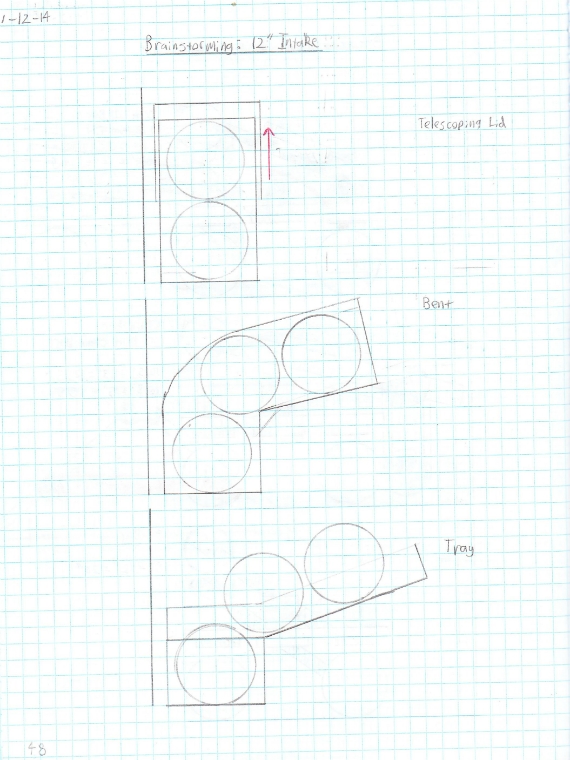 1-12-14
Brainstorming: 12" Intake
Telescoping Lid
Bent
Tray
48